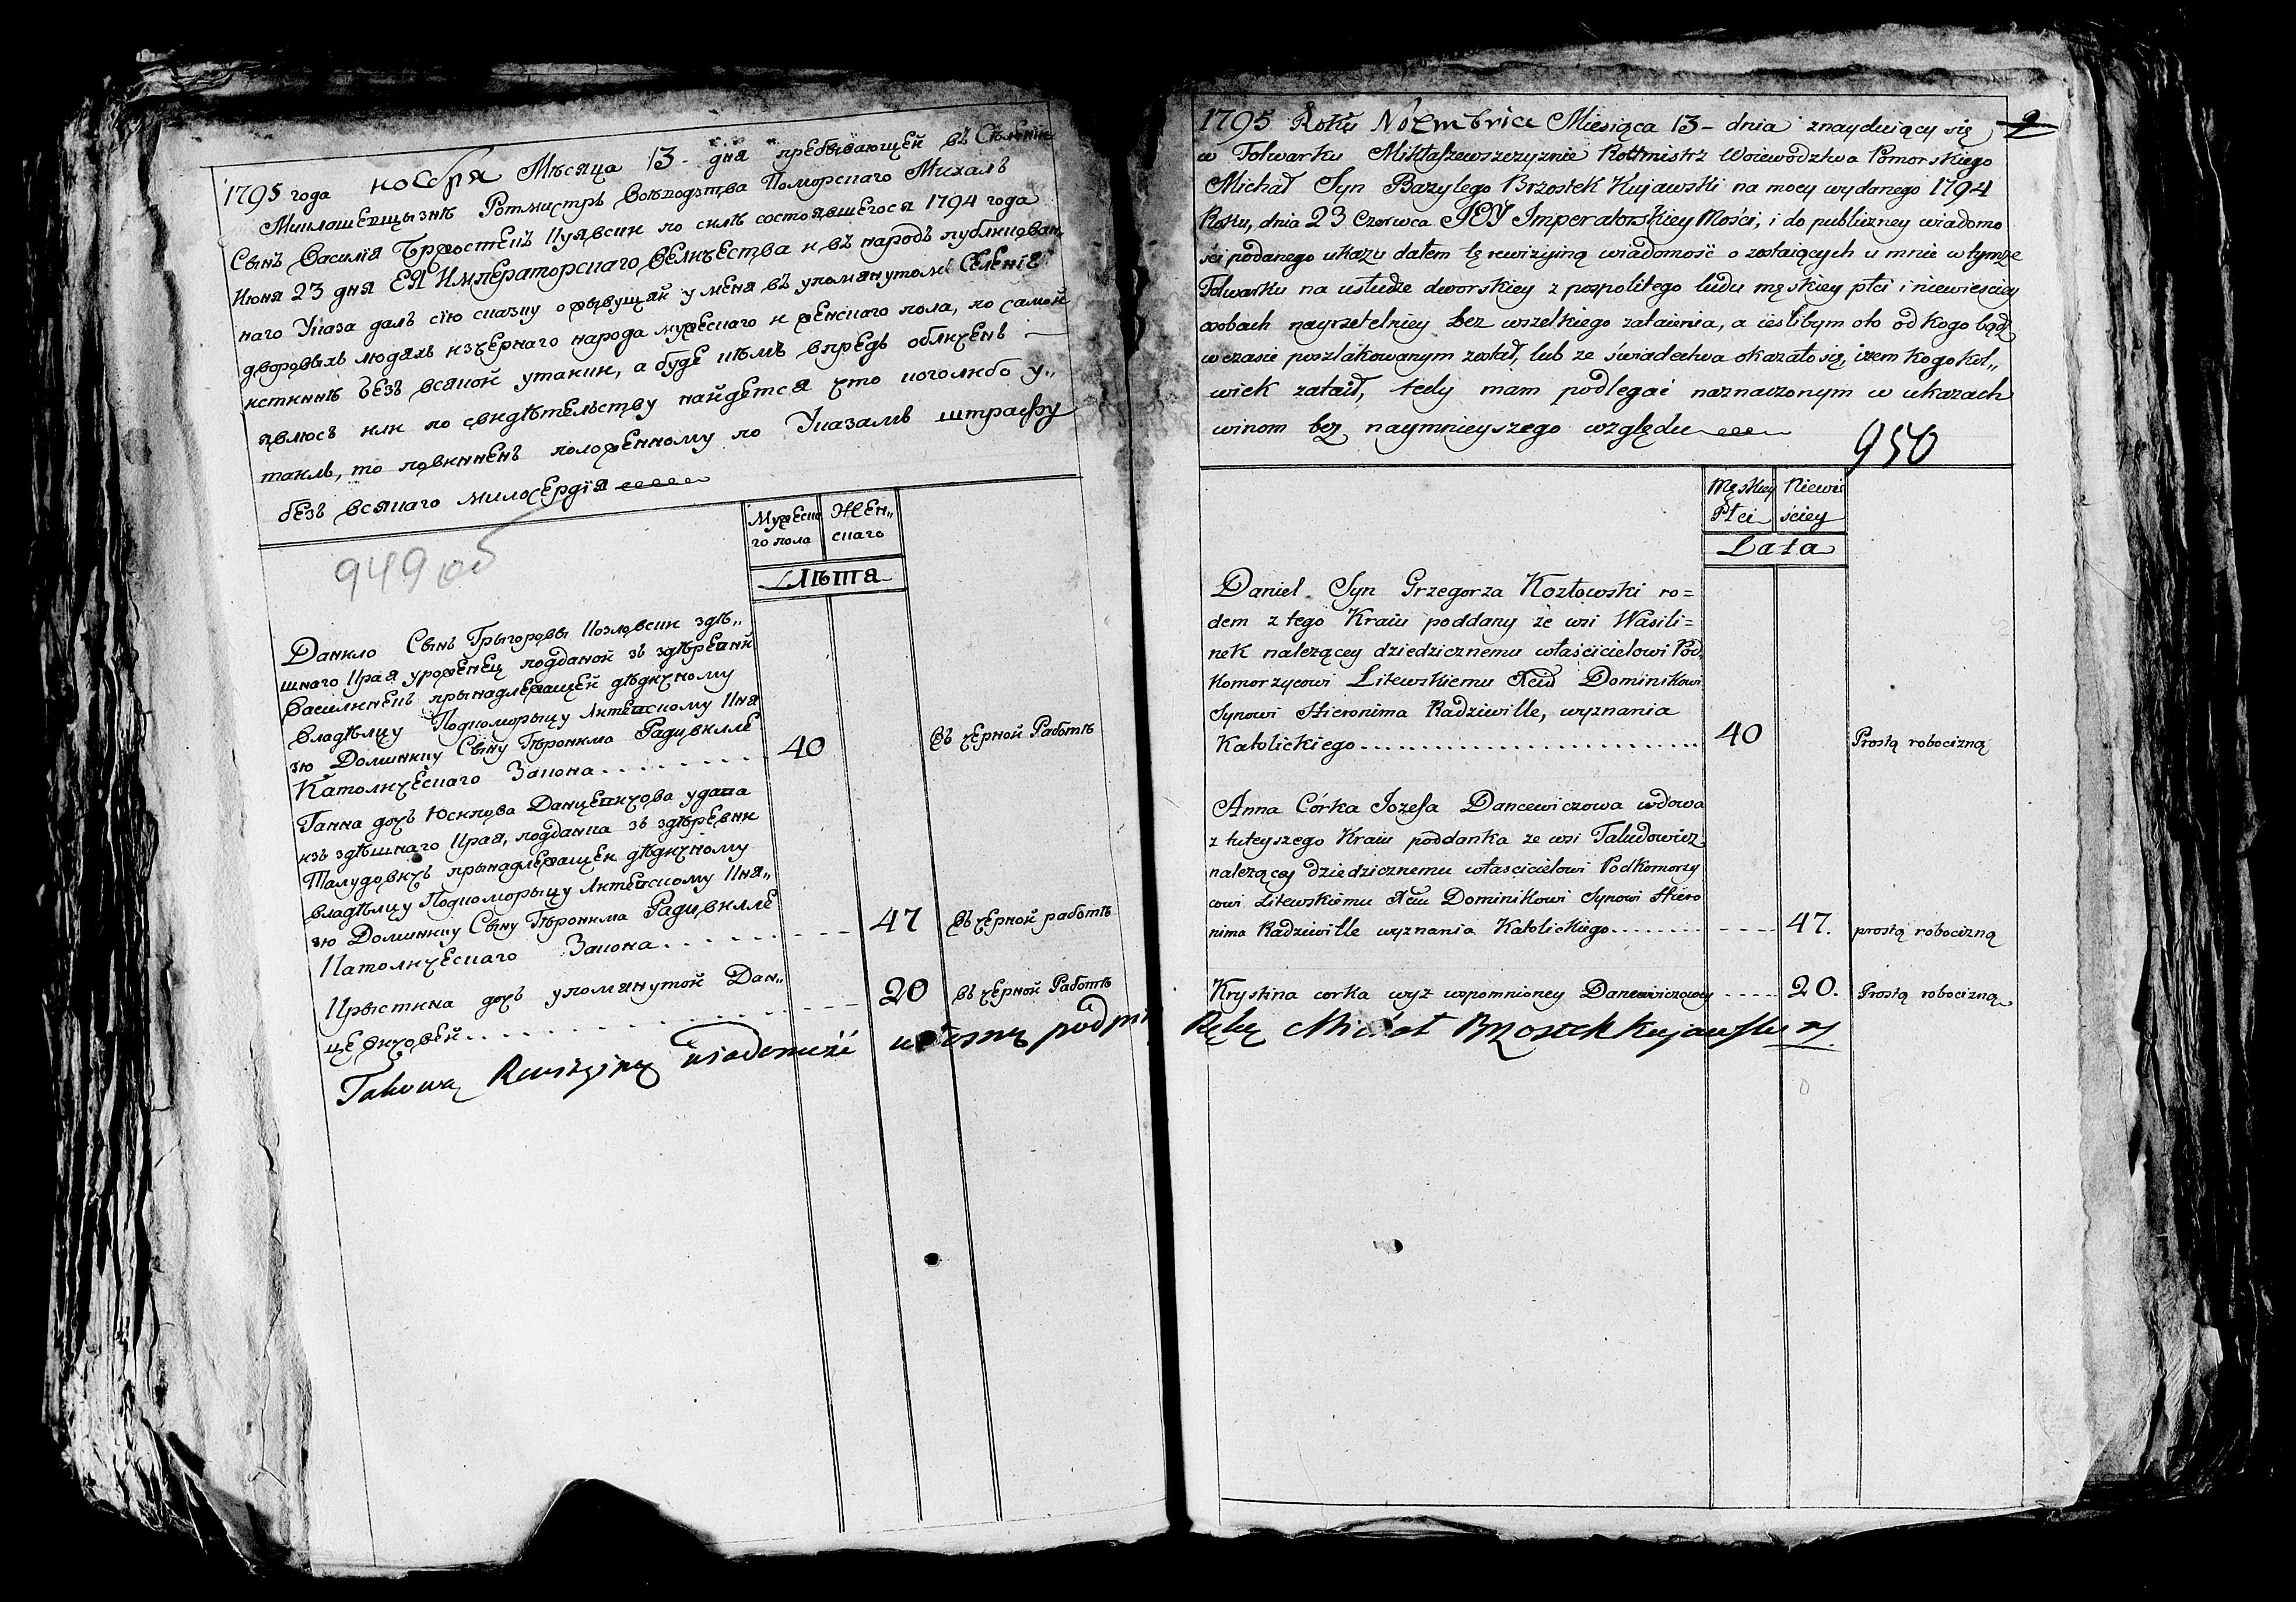 1795 года ноября Мѣсяца 13 - дня пребывающей въ Селеніи
Миклашевщызнѣ Ротмистръ Воѣводзтва Поморскаго Михалъ
Сынъ Василія Бржостекъ Куявски по силѣ состоявшегося 1794 года
Июня 23 дня ЕЯ Императорскаго Величества и въ народъ публикован„
наго Указа далъ сію сказку о живущей у меня въ упомянутомъ Селеніе
дворовыхъ людяхъ изъ чернаго народа мужескаго и женскаго пола, по самой
истиннѣ безъ всякой утайки, а буде кѣмъ впредь обличенъ
явлюсь или по свидѣтельству найдется что кого либо у„
таилъ, то повинненъ положенному по Указамъ штрафу
безъ всякаго милосердія
949 об
Мужеска
го пола
Жен„
скаго
Лѣта
Данило Сынъ Грыгоровы Козловски здѣ„
шнаго Края уроженец подданой зъ здѣревни
Василинекъ прынадлежащей дѣдичному
владѣлцу Подкоморыцу Литевскому Кня
зю Доминику Сыну Гѣронима Радзивилле
Католическаго Закона . . . . . . . .
40
въ черной Работѣ
Ганна дочь Юсипова Данцевичова удава
изъ здѣшнаго Края, подданка зъ здѣревни
Талудовичъ прынадлежащей дѣдичному
владѣлцу Подкоморыцу Литевскому Кня„
зю Доминику Сыну Гѣронима Радзивилле
Католическаго Закона . . . . . . .
47
въ черной работѣ
Крыстина дочь упомянутой Дан„
цевичовей . . . . . . . . . .
20
въ черной Работѣ
Takową Rewizyiną wiadomość własną podpi
1795 Roku Nowembrice Miesiąca 13 - dnia znayduiący się
w Folwarku Mikłaszewszczyznie Rottmistrz Woiewodztwa Pomorskiego
Michał Syn Bazylego Brzostek Kujawski na mocy wydanego 1794
Roku, dnia 23 Czerwca JEY Imperatorskiey Mości, i do publiczney wiadomo
ści podanego ukazu dałem tę rewizyiną wiadomość o zostaiących u mnie w tymże
Folwarku na usłudze dworskiey z pospolitego ludu męskiey płci i niewiesciey
osobach nayrzetelniey bez wszelkiego zataienia, a ieslibym oto od Kogo bądź
w czasie poszlakowanym został, lub ze świadectwa okazało się, iżem Kogo Kol„
wiek zataił, tedy mam podlegać naznaczonym w ukazach
winom bez naymnieyszego względu
9
950
Męskiey
Płci
Niewie
ściey
Lata
Daniel Syn Grzegorza Kozłowski ro=
dem z tego Kraiu poddany ze wsi Wasili=
nek należącey dziedzicznemu właścicielowi Pod„
Komorzycowi Litewskiemu Xciu Dominikowi
Synowi Hieronima Radziwille, wyznania
Katolickiego . . . . . . . . . . . . . . . .
40
Prostą robocizną
Anna Córka Jozefa Dancewiczowa wdowa
z tuteyszego Kraiu poddanka ze wsi Taludowicz
należącey dziedzicznemu właścicielowi Podkomorzy
cowi Litewskiemu Xciu Dominikowi Synowi Hiero
nima Radziwille wyznania Katolickiego . . . . . . . .
47.
prostą robocizną
Krystina corka wyż wspomnioney Dancewiczowey - - - -
20.
Prostą robocizną
Ręką Michał Brzostek Kujawski